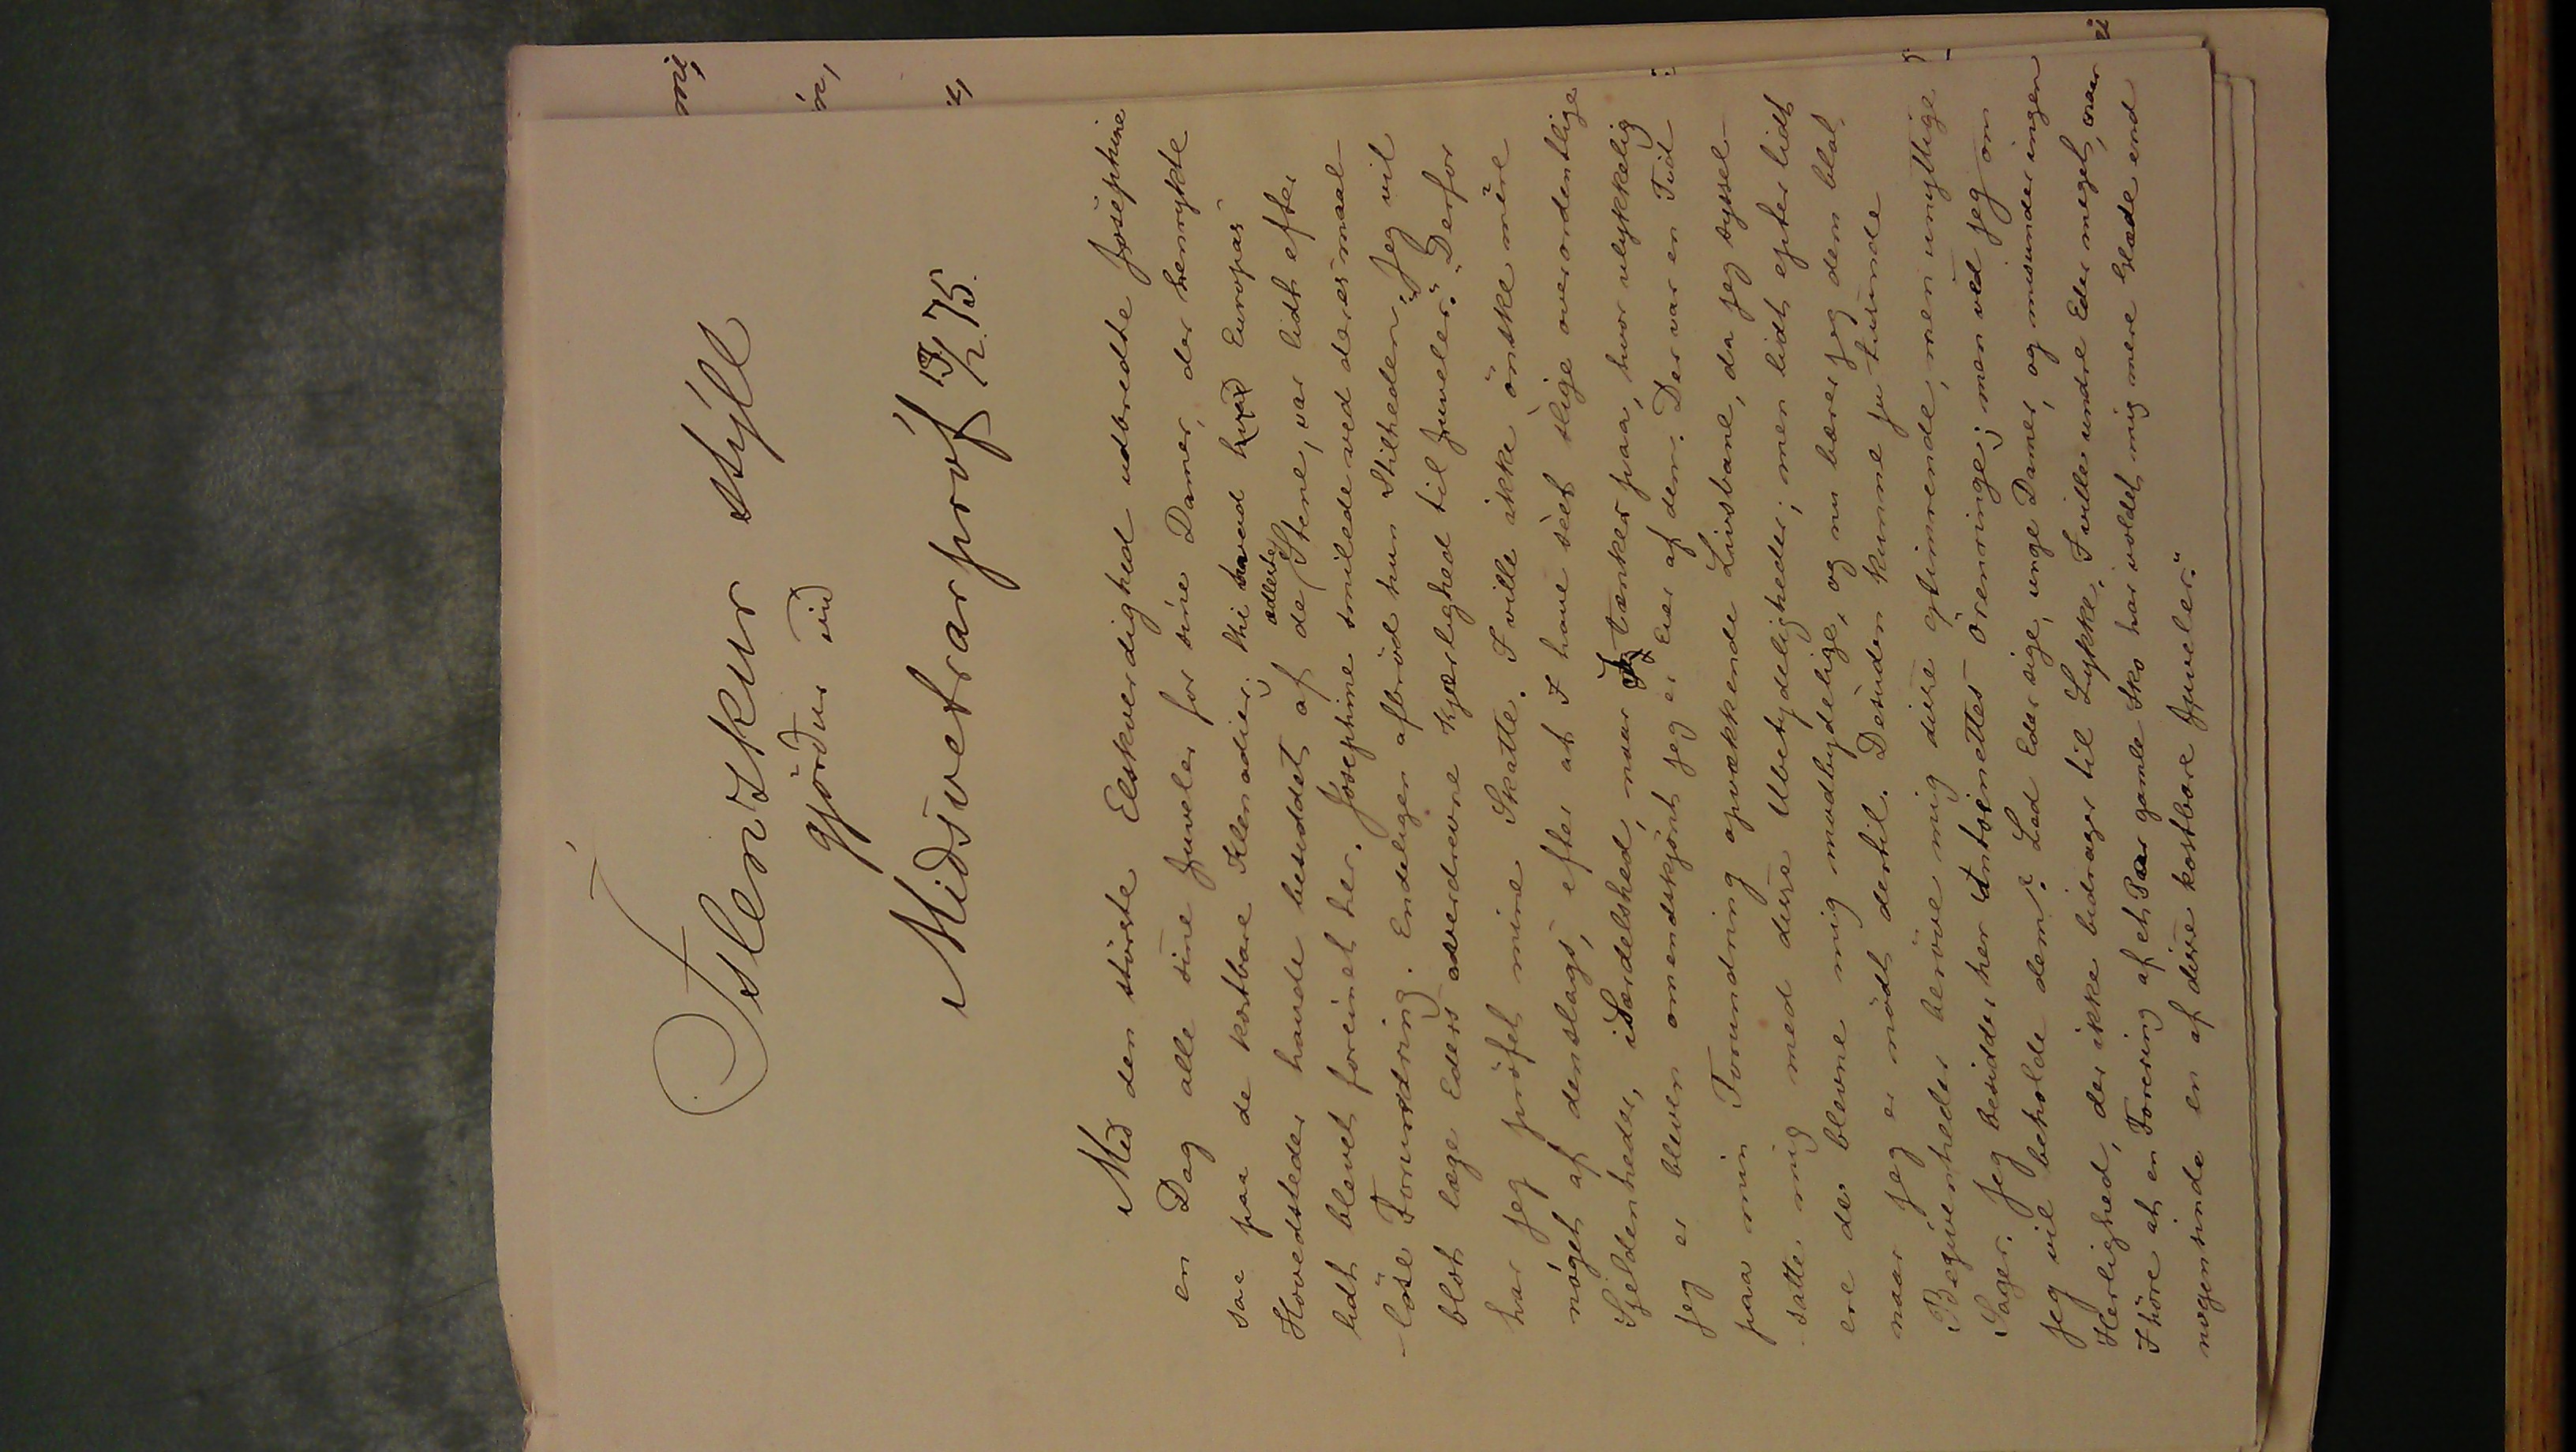 Íslenzkur stýll
gjörður við
Miðsvetrarpróf 13/2. 75.
Með den störste Elskværdighed udbredte Josephine
en Dag alle sine Juveler for sine Damer, der henrykte
saa paa de kostbare Klenodier; thi hvad Europas
Hovedsteder havde besiddet af de ædleste Stene, var lidt efter
lidt blevet foreinet her. Josephine smilede ved deres maal-
-löse Forundring. Endeligen afbröd hun Stilheden. "Jeg vil
blot læge Eders overdrevne Kjærlighed til Juveler." "Derfor
har jeg pröfet mine Skatte. I ville ikke önske mere
noget af denslags, efter at I have seet slige overordentlige
Sjeldenheder, iSærdelshed, naar I tænker paa, hvor ulykkelig
jeg er bleven omendskjönt jeg er Eier af dem. Der var en Tid
paa min Forundring opvækkende Livsbane, da jeg syssel-
satte mig med disse Ubetydeligheder; men lidt efter lidt
ere de blevne mig modbydelige, og nu bærer jeg dem blot,
naar jeg er nödt dertil. Desuden kunne ju tusinde
Begivenheder beröve mig disse glimrende, men unyttige
Sager. Jeg besidder her Antoinettes Örenringe; men ved jeg om
jeg vil beholde dem? Lad Eder sige, unge Damer, og misunder ingen
Herlighed, der ikke bidrager til Lykke. I ville undre Eder meget, naar
I höre at en Forering af et Par gamle Sko har voldet mig mere Glæde end
nogensinde en af disse kostbare Juveler."